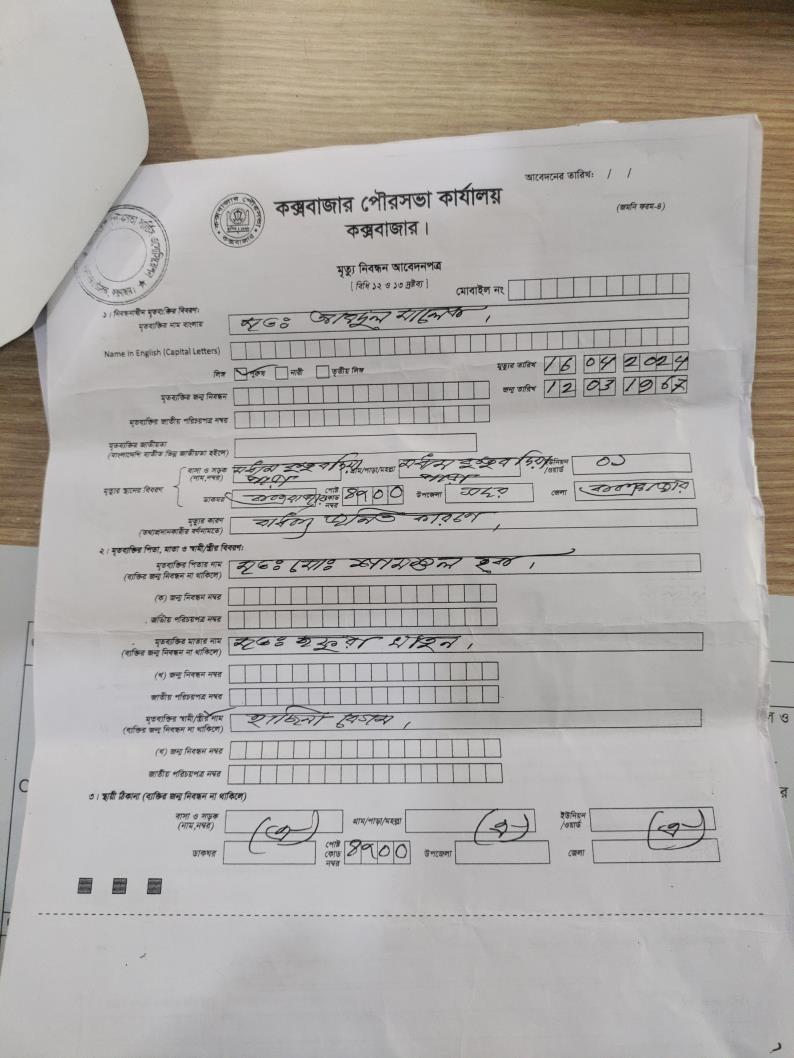 আবেদনের তারিখঃ / /
কক্সবাজার পৌরসভা কার্যালয়
(জমনি ফরম-৪)
কক্সবাজার।
কক্সবাজার পৌরসভা
কক্সবাজার
মৃত্যু নিবন্ধন আবেদনপত্র
[ বিধি ১২ ও ১৩ দ্রষ্টব্য ]
মোবাইল নং
১। নিবন্ধনাধীন মৃতব্যক্তির বিবরণ:
মৃতব্যক্তির নাম বাংলায় মৃতঃ আব্দুল মালেক,
Name in English (Capital Letters)
লিঙ্গ পুরুষ নারী তৃতীয় লিঙ্গ মৃত্যুর তারিখ 16 04 2024
মৃতব্যক্তির জন্ম নিবন্ধন জন্ম তারিখ 12 03 1967
মৃতব্যক্তির জাতীয় পরিচয়পত্র নম্বর
মৃতব্যক্তির জাতীয়তা
(বাংলাদেশি ব্যতীত ভিন্ন জাতীয়তা হইলে)
মৃত্যুর স্থানের বিবরণ বাসা ও সড়ক (নাম,নম্বর) পাড়া গ্রাম/পাড়া/মহল্লা পাড়া ইউনিয়ন /ওয়ার্ড ০১
ডাকঘর কক্সবাজার পোষ্ট কোড নম্বর ৪৭০০ উপজেলা সদর জেলা কক্সবাজার
মৃত্যুর কারণ
(তথ্যপ্রদানকারীর বর্ণনামতে) বার্ধক্য জনিত কারণে,
২। মৃতব্যক্তির পিতা, মাতা ও স্বামী/স্ত্রীর বিবরণঃ
মৃতব্যক্তির পিতার নাম মৃতঃ মোঃ হক,
(ব্যক্তির জন্ম নিবন্ধন না থাকিলে)
(ক) জন্ম নিবন্ধন নম্বর
জাতীয় পরিচয়পত্র নম্বর
মৃতব্যক্তির মাতার নাম মৃতঃ খাতুন,
(ব্যক্তির জন্ম নিবন্ধন না থাকিলে)
(খ) জন্ম নিবন্ধন নম্বর
জাতীয় পরিচয়পত্র নম্বর
মৃতব্যক্তির স্বামী/স্ত্রীর নাম বেগম,
(ব্যক্তির জন্ম নিবন্ধন না থাকিলে)
(ব) জন্ম নিবন্ধন নম্বর
জাতীয় পরিচয়পত্র নম্বর
৩। স্থায়ী ঠিকানা (ব্যক্তির জন্ম নিবন্ধন না থাকিলে)
বাসা ও সড়ক (নাম,নম্বর) (ঐ) গ্রাম/পাড়া/মহল্লা (ঐ) ইউনিয়ন /ওয়ার্ড (ঐ)
ডাকঘর পোষ্ট কোড নম্বর ৪৭০০ উপজেলা জেলা